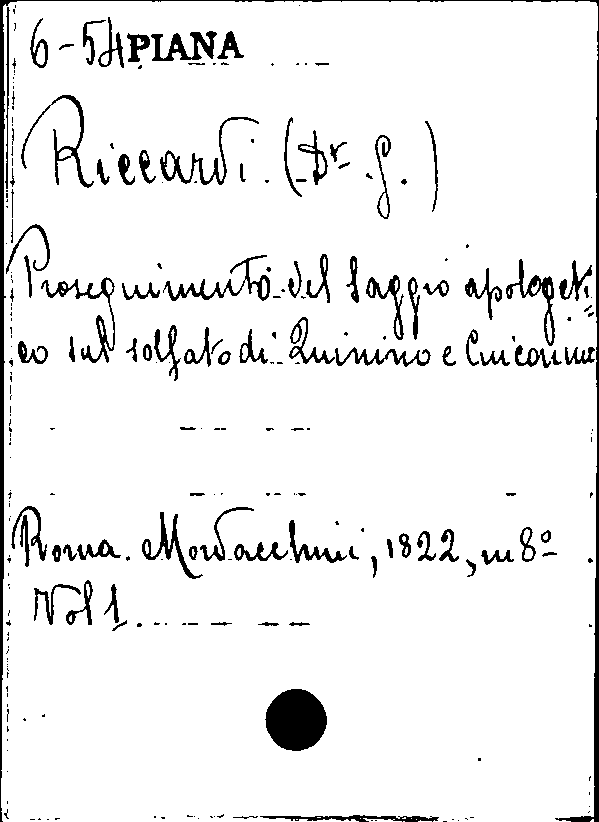 6-54 PIANA
Riccardi. (Dr. G.)
Proseguimento del Saggio apologeti=
co sul solfato di Quinino e Cinconina
Roma. Mordacchini, 1822, in 8º
Vol 1.